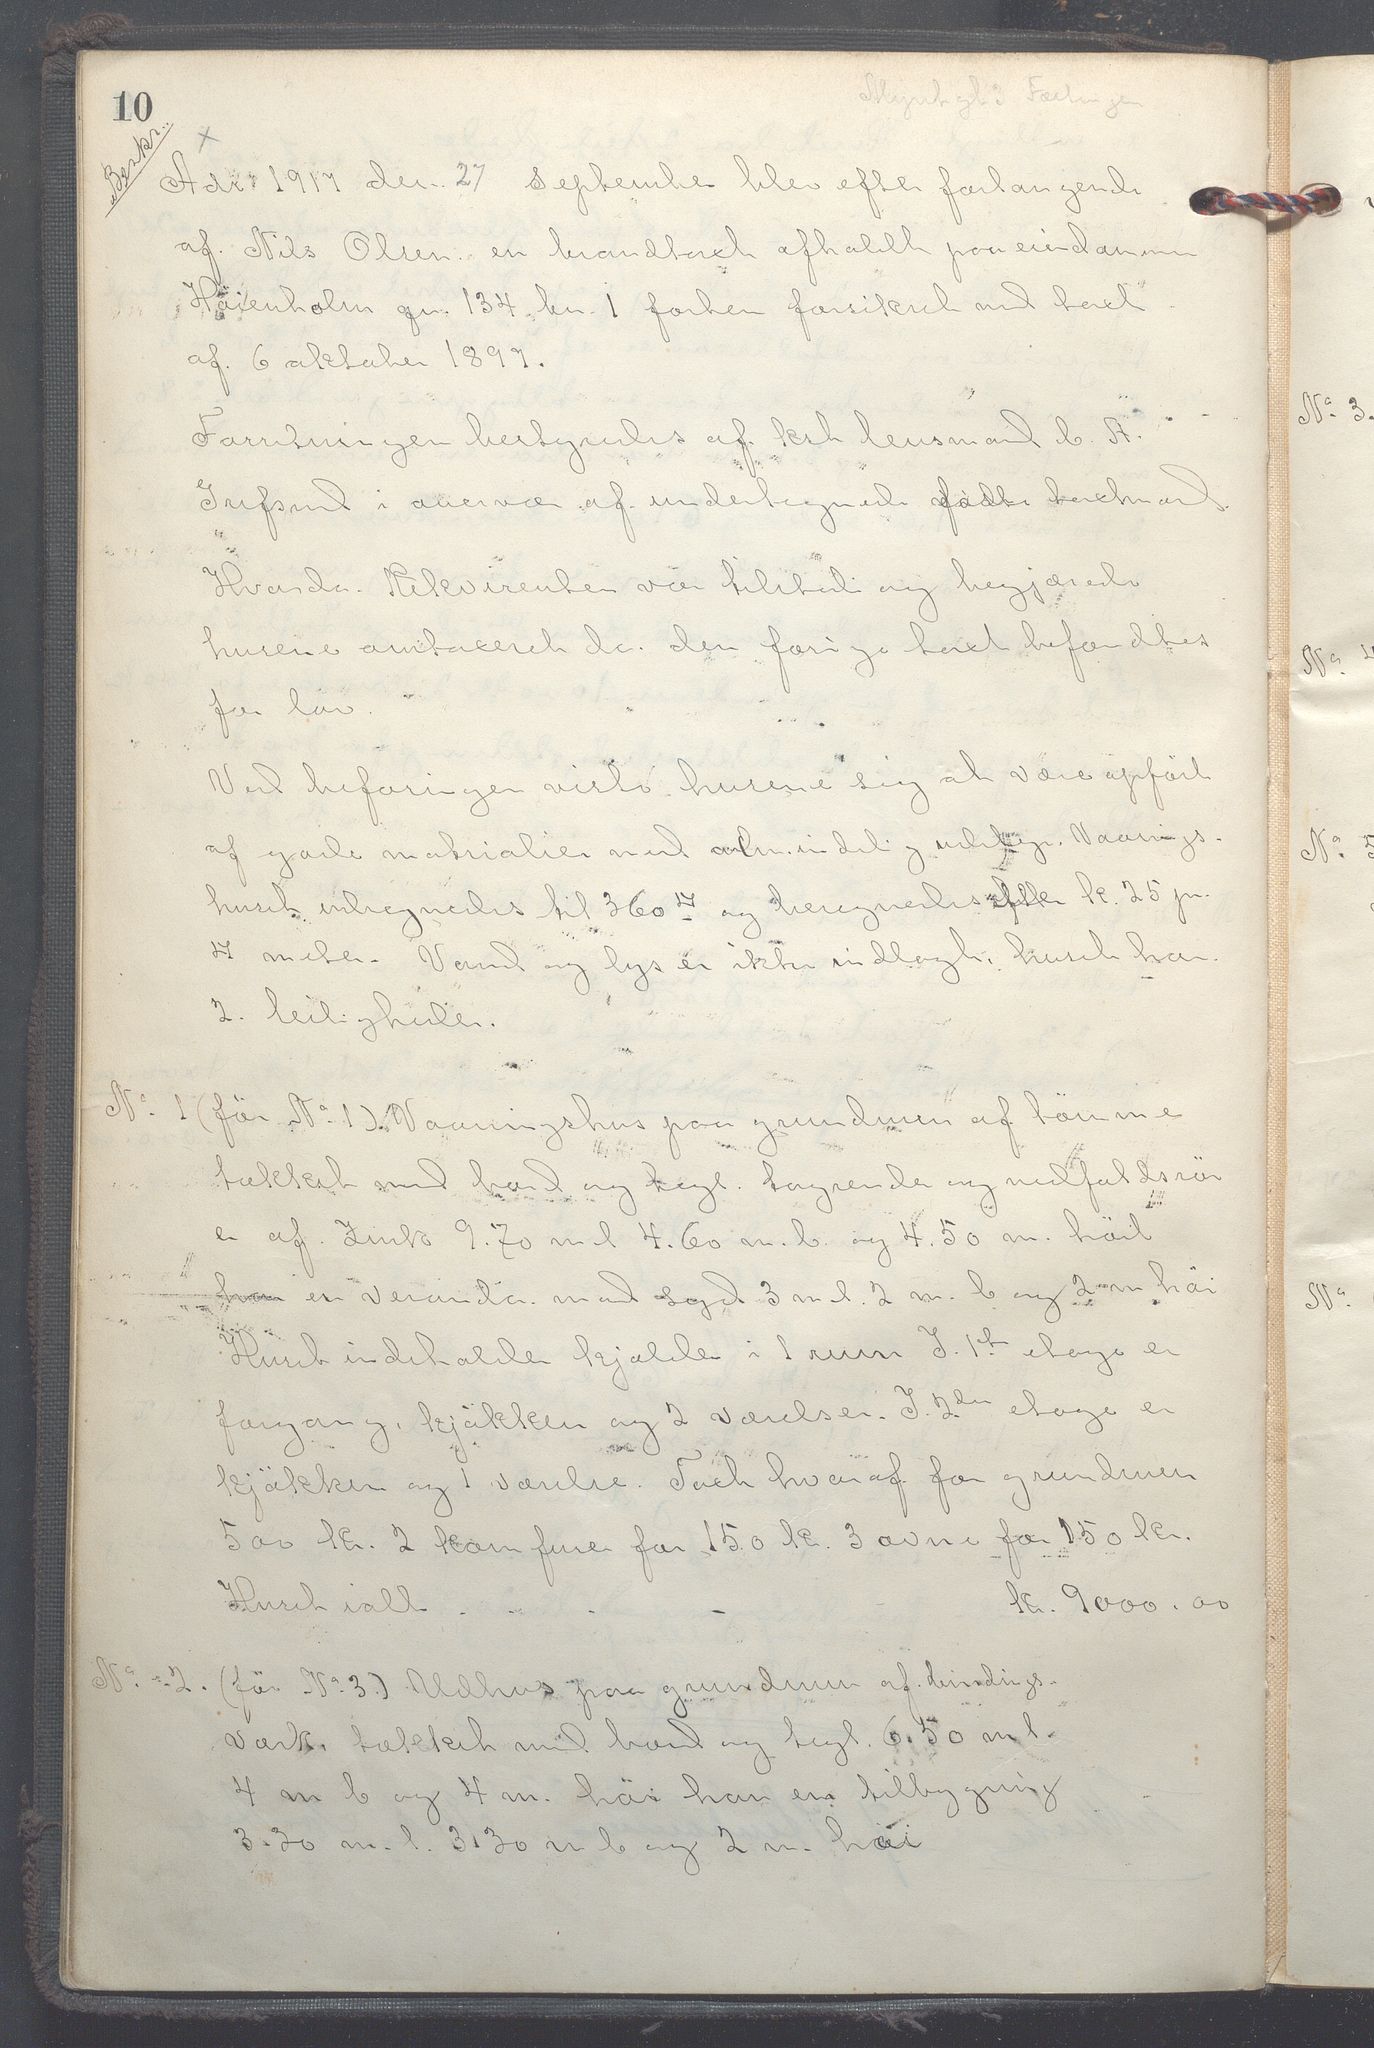 10
Beskr.
Aar 1917 den 27 September blev efter forlangende
af. Nils Olsen en brandtaxt afholdt paa eiendommen
Høienholm gn. 134 bn. 1 forhen forsikret med taxt
af. 6 oktober 1897.
Forretningen bestyredes af. kst lensmand
i overvær af. undertegnede faste taxtmænd.
Hvorda. Rekvirenten var tilstede og begjærede
husene omtaxeret da. den forige taxt befandtes
for lav.
Ved befaringen viste husene sig at være opført
af gode materialier med almindelig utstyr. Vaanings-
huset. indregnedes til 360 og beregnedes efter k. 25 pr.
meter. Vand og lys er ikke indlagt, huset har
2. leiligheder.
No. 1 (før No. 1). Vaaningshus paa grundmur af tømmer
tækket med bord og tegl. tagrender og nedfaldsrör
er af. Zink 9.70 m l 4.60 m. b. og 4.50 m. höit
har en veranda. mod syd 3 m l. 2 m. b og 2 m höi
Huset indeholder kjælder i 1 rum I. 1st etage er
forgang, kjökken og 2 værelser. I. 2den etage er
kjökken og 1 værelse. Taxt hvoraf. for grundmur
500 kr. 2 komfurer for 150 kr. 3 ovne for 150 kr.
Huset ialt - - - - kr. 9000.00
No. 2. (för No 3.) Udhus paa grundmur af. bindings-
værk. tækket med bord og tegl. 6.50 m l.
4 m b og 4 m. höi har en tilbygning
3.30 m. l. 3.30 m b og 2 m. höi
No. 3.
No. 4
No. 5
No.